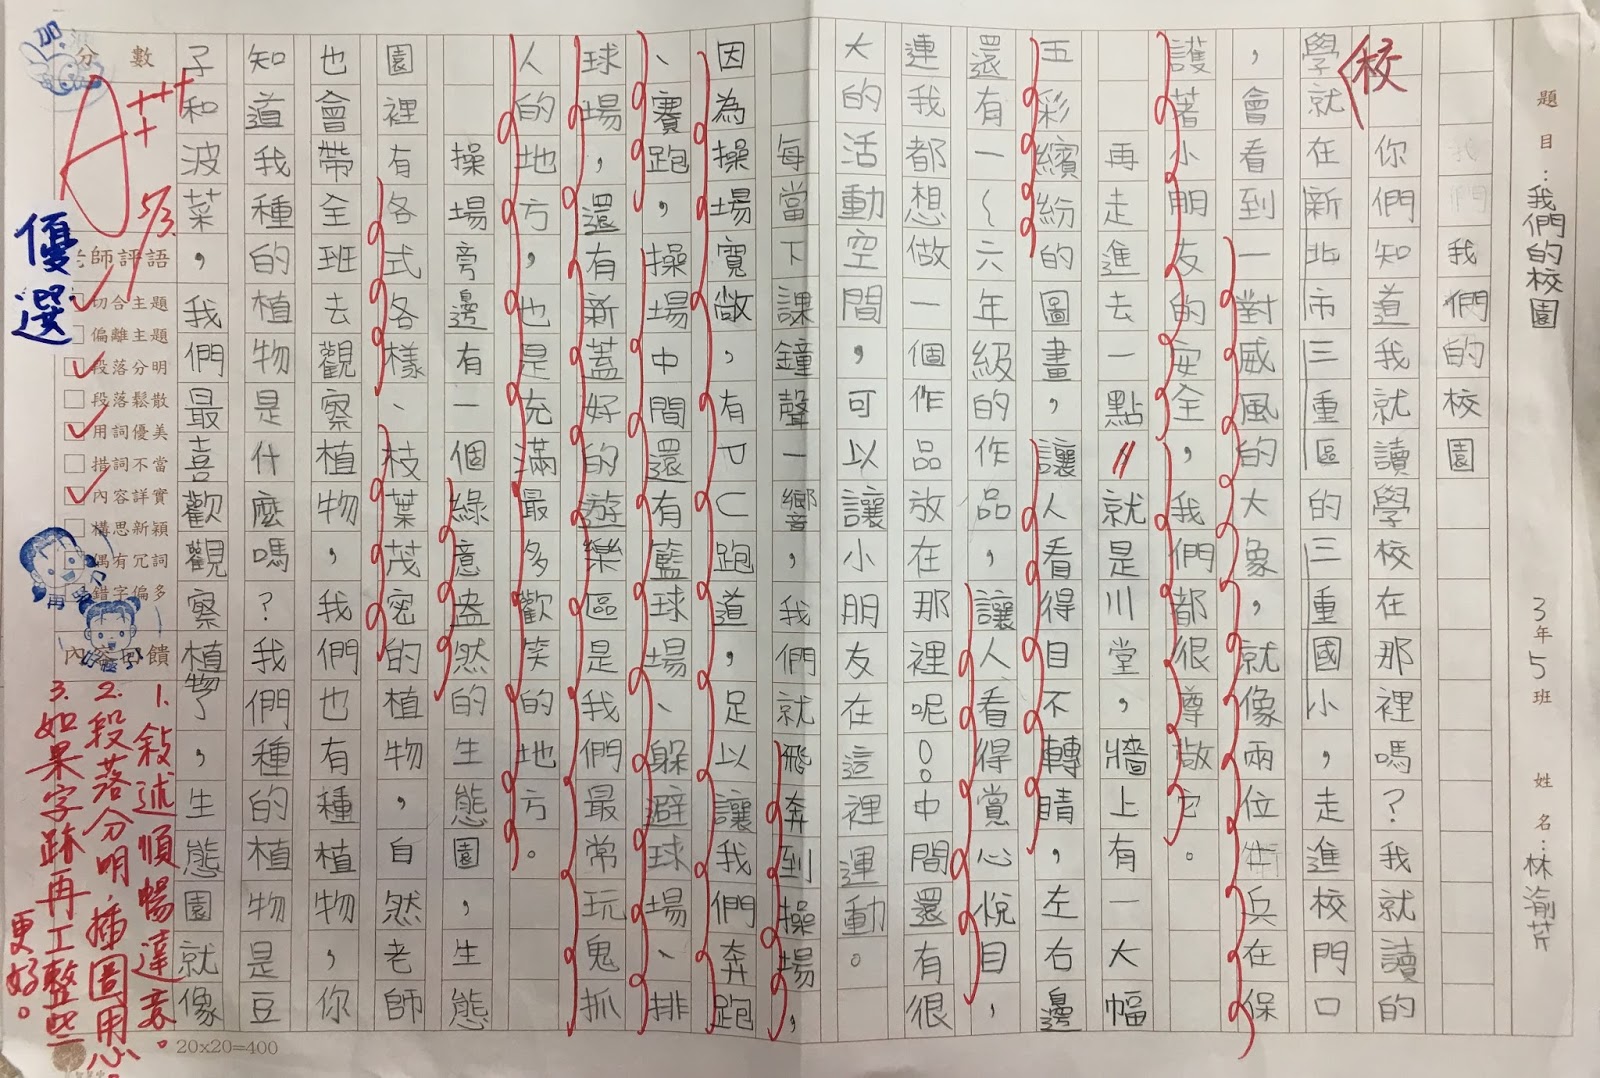 題目：我們的校園 3年5班 姓名：林渝芹
我們的校園
你們知道我就讀學校在那裡嗎？我就讀的
學就在新北市三重區的三重國小，走進校門口
校
，會看到一對威風的大象，就像兩位衛兵在保
護著小朋友的安全，我們都很尊敬它。
再走進去一點就是川堂，牆上有一大幅
五彩繽紛的圖畫，讓人看得目不轉睛，左右邊
還有一～六年級的作品，讓人看得賞心悅目，
連我都想做一個作品放在那裡呢。中間還有很
大的活動空間，可以讓小朋友在這裡運動。
每當下課鐘聲一響，我們就飛奔到操場，
因為操場寬敞，有ㄗㄈ跑道，足以讓我們奔跑
、賽跑，操場中間還有籃球場、躲避球場、排
球場，還有新蓋好的遊樂區是我們最常玩鬼抓
人的地方，也是充滿最多歡笑的地方。
操場旁邊有一個綠意盎然的生態園，生態
園裡有各式各樣、枝葉茂密的植物，自然老師
也會帶全班去觀察植物，我們也有種植物，你
知道我種的植物是什麼嗎？我們種的植物是豆
子和波菜，我們最喜歡觀察植物了，生態園就像
分數
A++++
5/3.
優選
老師評語
切合主題
偏離主題
段落分明
段落鬆散
用詞優美
措詞不當
內容詳實
構思新穎
偶有冗詞
錯字偏多
內容回饋
1.敘述順暢達意。
2.段落分明，插圖用心。
3.如果字跡再工整些
更好。
20x20=400